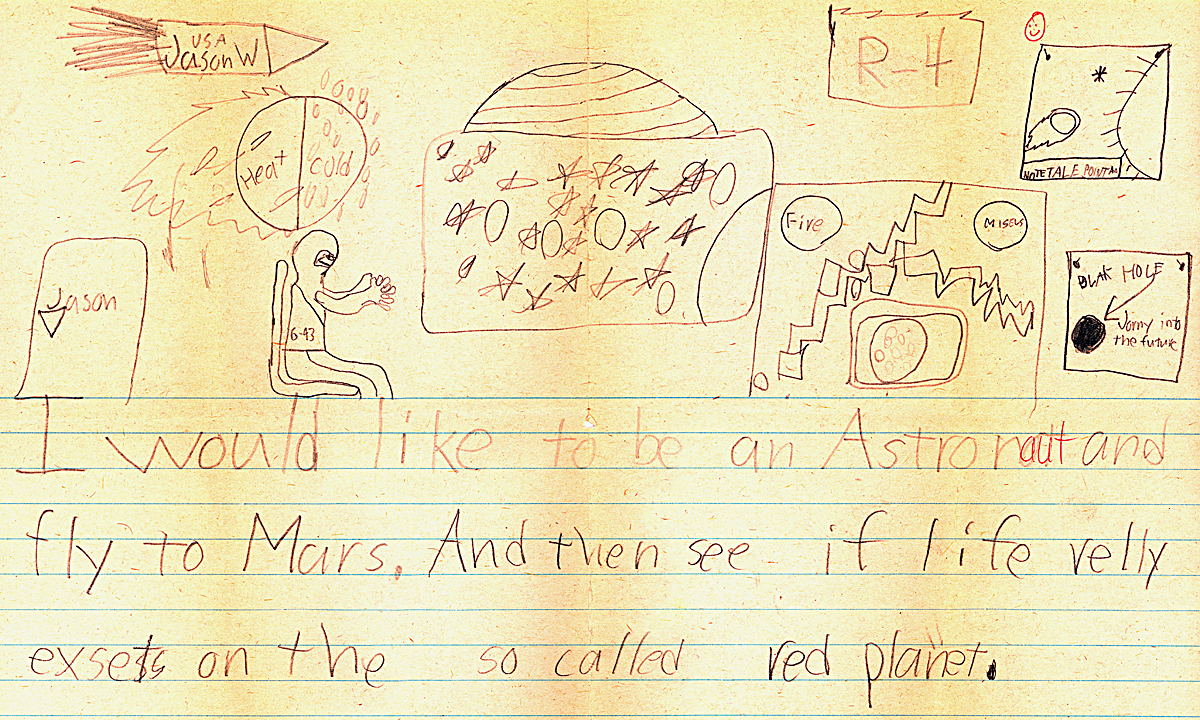 USA
Jason W
R-4
Heat
Cold
Jason
6-93
Five
MISELS
BLAK HOLE
Jorny into
the future
I would like to be an Astronaut and
fly to Mars. And then see if life relly
exsets on the so called red planet.